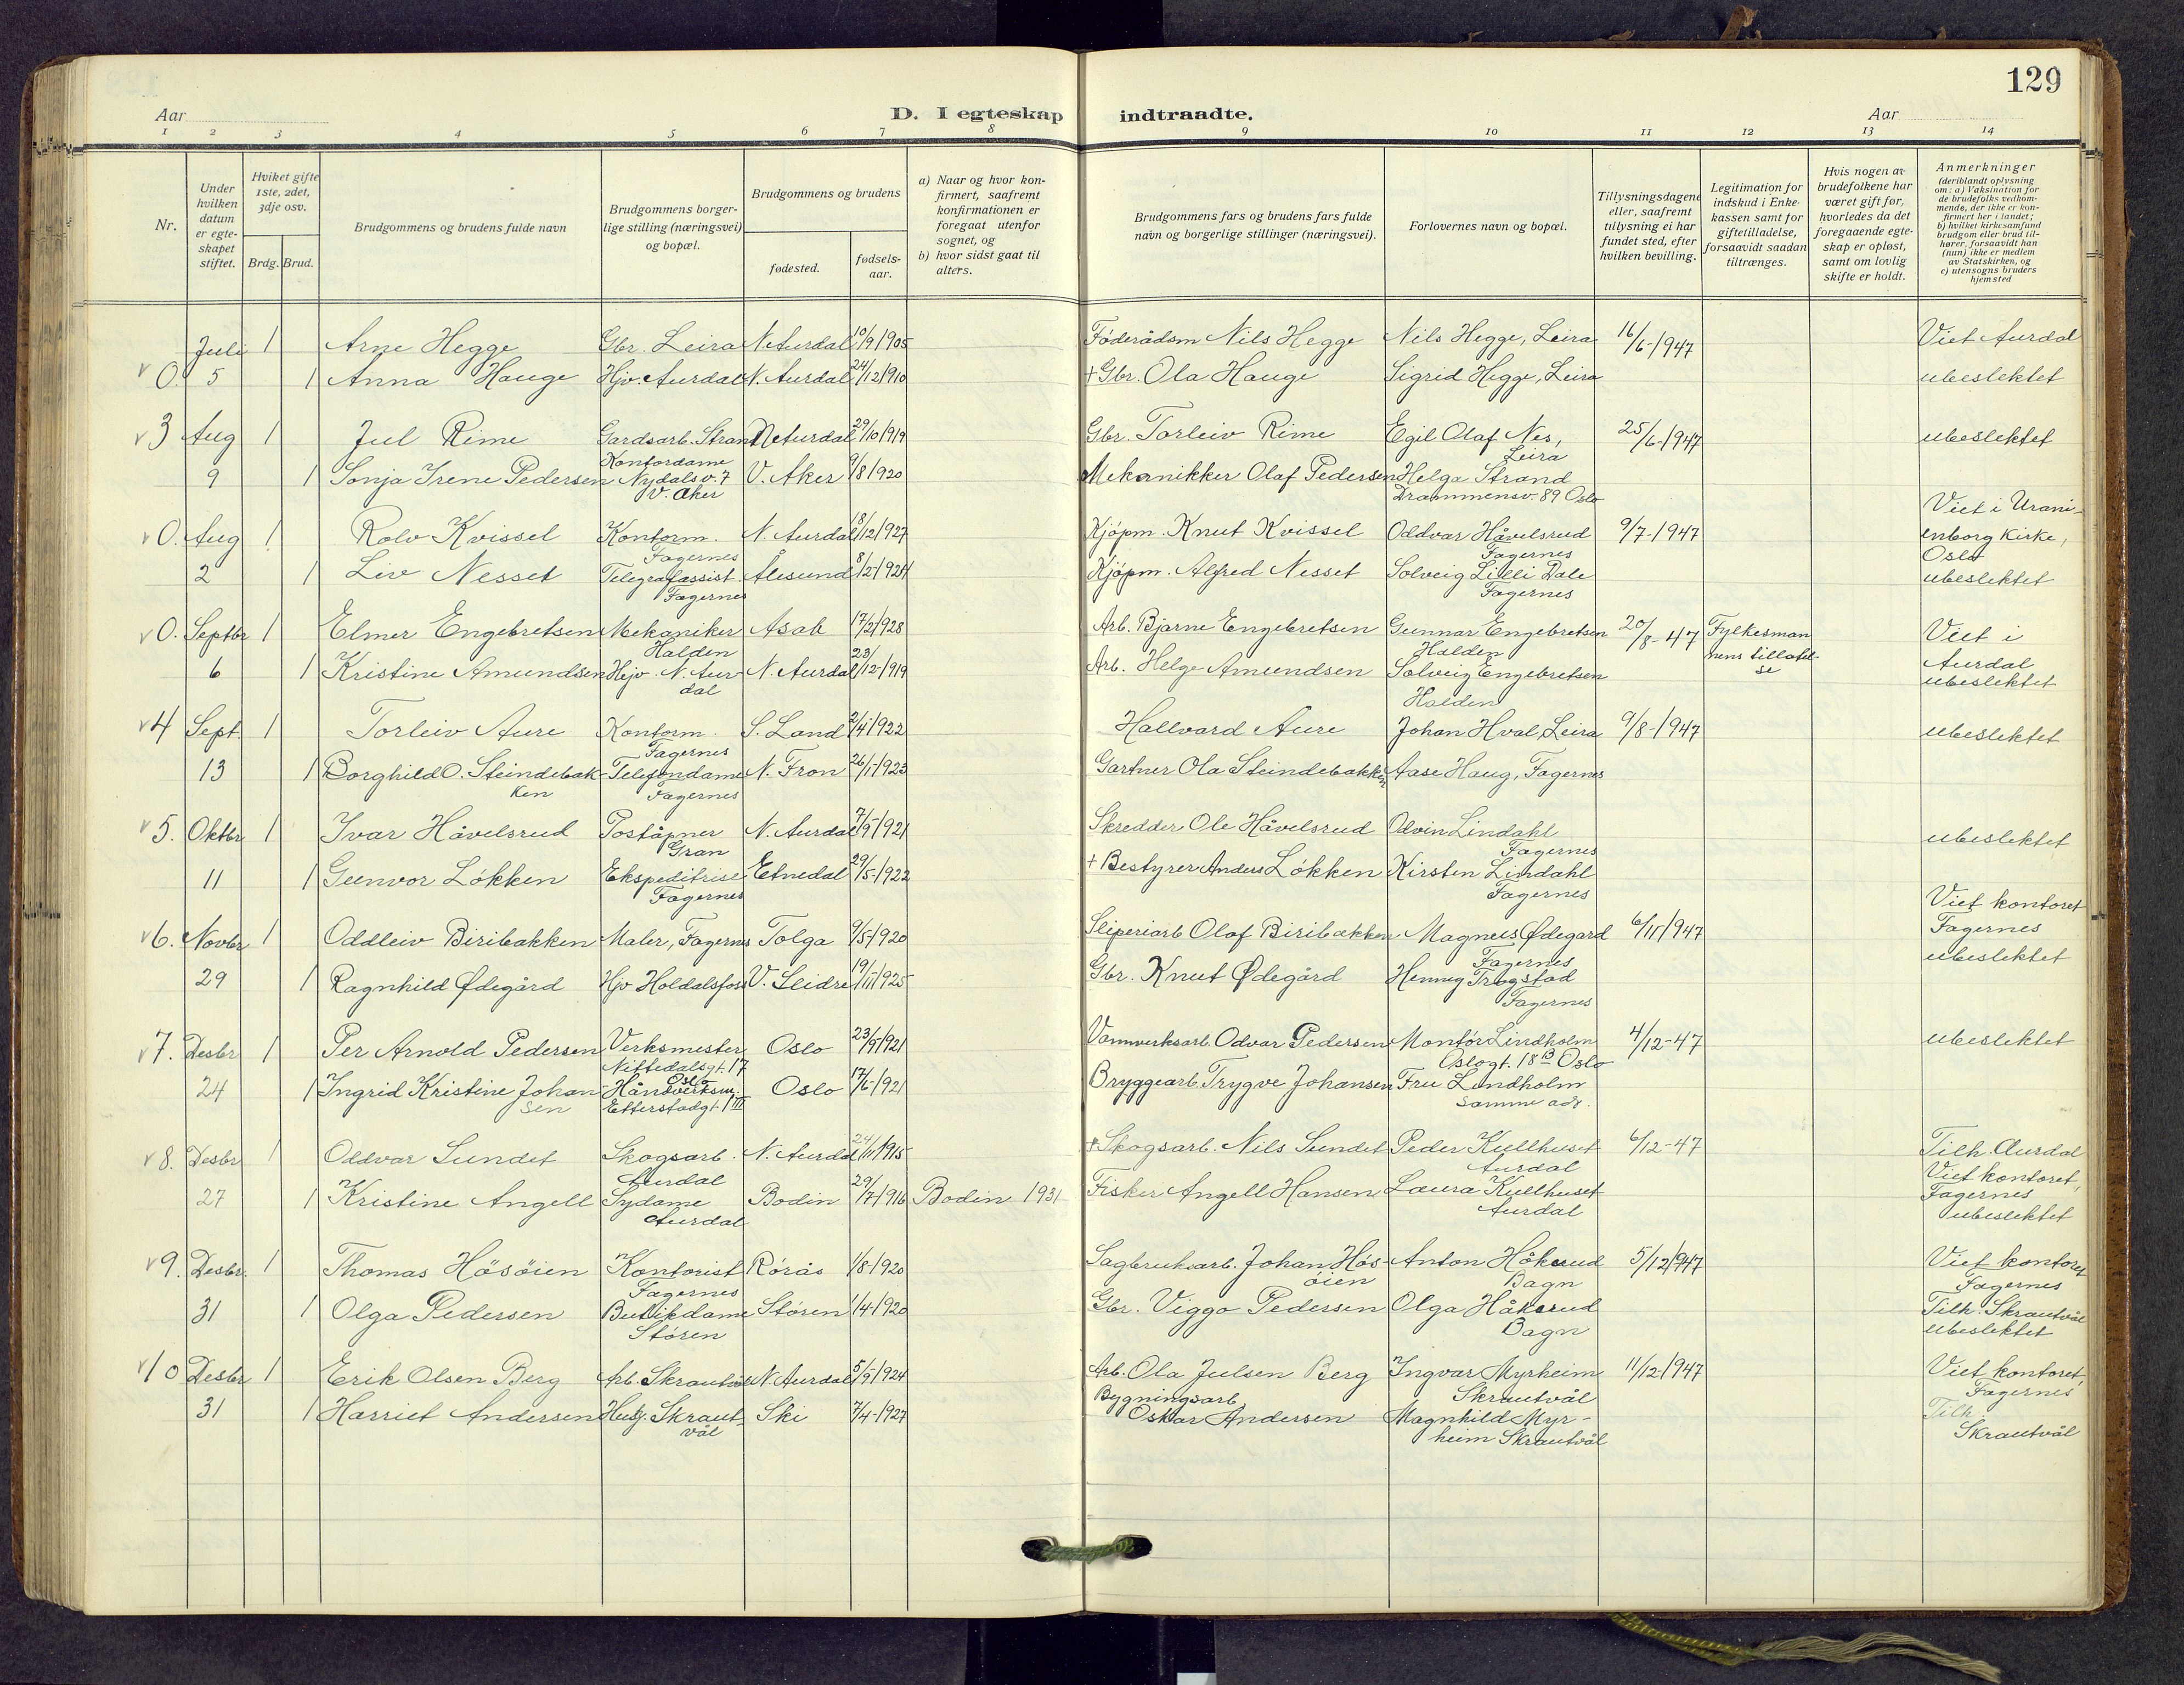 129
Aar
D. I egteskap indtraadte.
Aar
1 2 3 4 5 6 7 8 9 10 11 12 13 14
Nr.
Under hvilken datum er egteskapet stiftet.
Hviket gifte 1ste, 2det, 3dje osv.
Brdg. Brud.
Brudgommens og brudens fulde navn
Brudgommens borgerlige stilling (næringsvei) og bopæl.
Brudgommens og brudens
fødested.
fødselsaar.
a) Naar og hvor konfirmert, saafremt konfirmationen er foregaat utenfor sognet, og
b) hvor sidst gaat til alters.
Brudgommens fars og brudens fars fulde navn og borgerlige stillinger (næringsvei).
Forlovernes navn og bopæl.
Tillysningsdagene eller, saafremt tillysning ei har fundet sted, efter hvilken bevilling.
Legitimation for indskud i Enkekassen samt for giftetilladelse, forsaavidt saadan tiltrænges.
Hvis nogen av brudefolkene har været gift før, hvorledes da det foregaaende egteskap er opløst, samt om lovlig skifte er holdt.
Anmerkninger
(deriblandt oplysning om: a) Vaksination for de brudefolks vedkommende, der ikke er konfirmert her i landet; b) hvilket kirkesamfund brudgom eller brud tilhører, forsaavidt han (hun) ikke er medlem av Statskirken, og c) utensogns bruders hjemsted
Juli 1 Arne Hegge Gbr. Leira N. Aurdal 10/9 1905 Föderådsm Nils Hegge Nils Hegge, Leira 16/6-1947 Viet Aurdal
0. 5 1 Anna Hauge Hjv. Aurdal N. Aurdal 24/12 1910 + Gbr. Ola Hauge Sigrid Hegge, Leira ubeslektet
3 Aug 1 Jul Rime Gardsarb. Strand N. Aurdal 29/10 1919 Gbr. Torleiv Rime Egil Olaf Nes, Leira 25/6-1947 ubeslektet
9 1 Sonja Irene Pedersen Kontordame Nydalsv. 7 V. Aker V. Aker 9/8 1920 Mekanikker Olaf Pedersen Helga Strand Drammensv. 89 Oslo
0. Aug 1 Rolv Kvissel Kontorm. Fagernes N. Aurdal 18/12 1927 Kjöpm. Knut Kvissel Oddvar Håvelsrud Fagernes 9/7-1947 Viet i Uranienborg Kirke, Oslo
2 1 Liv Nesset Telegrafassist. Fagernes Ålesund 8/2-1924 Kjöpm. Alfred Nesset Solveig Lilli Dale Fagernes ubeslektet
0. Septbr 1 Elmer Engebretsen Mekaniker Halden Asak 17/2 1928 Arb. Bjarne Engebretsen Gunnar Engebretsen Halden 20/8-47 Fylkesmannens tillatelse Viet i Aurdal
6 1 Kristine Amundsen Hejv. N. Aurdal N. Aurdal 23/12-1919 Arb. Helge Amundsen Solveig Engebretsen Halden ubeslektet
4 Sept. 1 Torleiv Aure Kontorm. Fagernes S. Land 2/4 1922 Hallvard Aure Johan Hval, Leira 9/8-1947 ubeslektet
13 1 Borghild O. Steindebakken Telefondame Fagernes N. Fron 26/1-1923 Gartner Ola Steindebakken Aase Haug, Fagernes
5. Oktbr 1 Ivar Håvelsrud Poståpner Gran N. Aurdal 7/9 1921 Skredder Ole Håvelsrud Odvin Lindahl Fagernes ubeslektet
11 1 Gunvor Lökken Ekspeditrise Fagernes Etnedal 29/5-1922 + Bestyrer Anders Lökken Kirsten Lindahl Fagernes
6. Novbr 1 Oddleiv Biribakken Maler, Fagernes Tolga 9/5-1920 Sliperiarb Olaf Biribakken Magnus Ødegard Fagernes 6/11 1947 Viet kontoret Fagernes
29 1 Ragnhild Ødegård Hjv Holdalsfoss V. Slidre 19/11 1925 Gbr. Knut Ødegård Henny Trøgstad Fagernes ubeslektet
7. Desbr 1 Per Arnold Pedersen Verksmester Nittedalsgt. 17 Oslo Oslo 23/9 1921 Vannverksarb. Odvar Pedersen Montör Lindholm Oslogt. 18 B Oslo 4/12-47 ubeslektet
24 1 Ingrid Kristine Johansen Håndverksm. Etterstadgt. 1 III Oslo 17/6-1921 Bryggearb. Trygve Johansen Fru Lindholm samme adr.
8. Desbr 1 Oddvar Sundet Skogsarb. Aurdal N. Aurdal 24/11 1915 + Skogsarb. Nils Sundet Peder Kullhuset Aurdal 6/12-47 Tilh. Aurdal Viet kontoret,
27 1 Kristine Angell Sydame Aurdal Bodin 29/7 1916 Bodin 1931 Fisker Angell Hansen Laura Kullhuset Aurdal Fagernes ubeslektet
9. Desbr. 1 Thomas Hösöien Kontorist Fagernes Rörås 1/8-1920 Sagbruksarb. Johan Hösöien Anton Håkerud Bagn 5/12 1947 Viet kontoret Fagernes
31 1 Olga Pedersen Butikdame Stören Stören 1/4-1920 Gbr. Viggo Pedersen Olga Håkerud Bagn Tilh. Skrautvål ubeslektet
10 Desbr 1 Erik Olsen Berg Arb. Skrautvål N. Aurdal 5/9 1924 Arb. Ola Julsen Berg Ingvar Myrheim Skrautvål 11/12 1947 Viet kontoret, Fagernes
31 1 Harriet Andersen Husj. Skrautvål Ski 7/4-1927 Bygningsarb. Oskar Andersen Magnhild Myrheim Skrautvål Tilh. Skrautvål